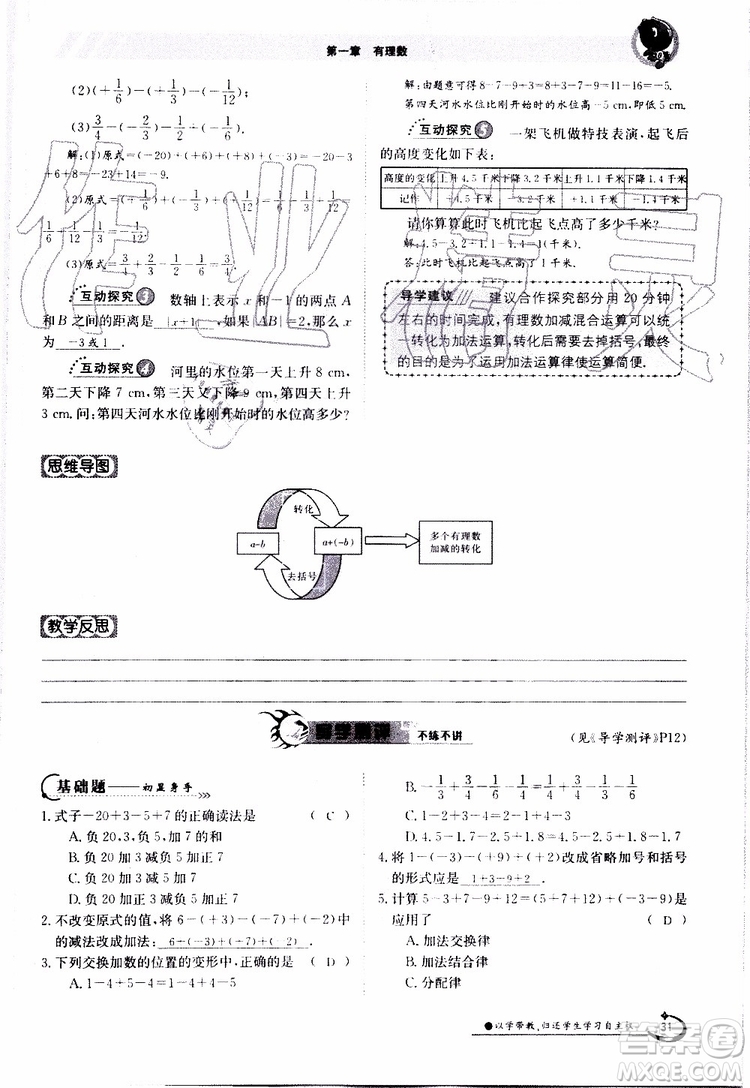 第一章 有理数
(2)(-1/6)-(-1/3)-(-1/12);
(3)3/4-(-1/4)-(-3/4)-(-1/2).
解:(1)原式=(-20)+(+6)+(+8)=-20
+6+8=-23+14=-9.
(3)原式=
互动探究3 数轴上表示 x 和-1 的两点 A
和 B 之间的距离是 |x+1|,如果|AB|=2,那么 x
为 -3或1.
互动探究4 河里的水位第一天上升 8 cm,
第二天下降 7 cm,第三天又下降 9 cm,第四天上升
3 cm.问:第四天河水水位比刚开始时的水位高多少?
解:由题意可得8-7-9+3=8+3-7-9=11-16=-5.
第四天河水水位比开始时的水位高-5 cm,即低5 cm.
互动探究5 一架飞机做特技表演,起飞后
的高度变化如下表:
高度的变化 上升4.5千米 下降3.2千米 上升1.1千米 下降1.4千米
记作 +4.5千米 -3.2千米 +1.1千米 -1.4千米
请你算算此时飞机比起飞点高了多少千米.
解:4.5-3.2+1.1-1.4=1(千米).
答:此时飞机比起飞点高了1千米.
导学建议 建议合作探究部分用 20 分钟
左右的时间完成,有理数加减混合运算可以统
一转化为加法运算,转化后要去掉括号,最终
的目的是为了运用加法运算律使运算简便.
思维导图
转化
a-b
a+(-b)
去括号
多个有理数
加减的转化
教学反思
导学测评 不练不讲
(见《导学测评》P12)
基础题——初显身手
1.式子-20+3-5+7的正确读法是 ( C )
A.负 20,3,负 5,加 7 的和
B.负 20 加 3 减负 5 加正 7
C.负 20 加 3 减 5 加 7
D.负 20 加正 3 减负 5 加正 7
2.不改变原式的值,将 6-(+3)-(+7)+(-2)中
的减法改成加法: 6+(-3)+(-7)+(-2).
3.下列交换加数的位置的变形中,正确的是 ( D )
A.1-4+5-4=1-4+4-5
B.-1/3+3/4-1/6-1/4=1/4+3/4-1/3-1/6
C.1-2+3-4=2-1+4-3
D.4.5-1.7-2.5+1.8=4.5-2.5+1.8-1.7
4.将 1-(-3)-(+9)+(+2)改成省略加号和括号
的形式应是 1+3-9+2.
5.计算 5-3+7-9+12=(5+7+12)+(-3-9)是
应用了 ( D )
A.加法交换律
B.加法结合律
C.分配律
●以学带教,归还学生学习自主权
31
作业精灵
答案圈